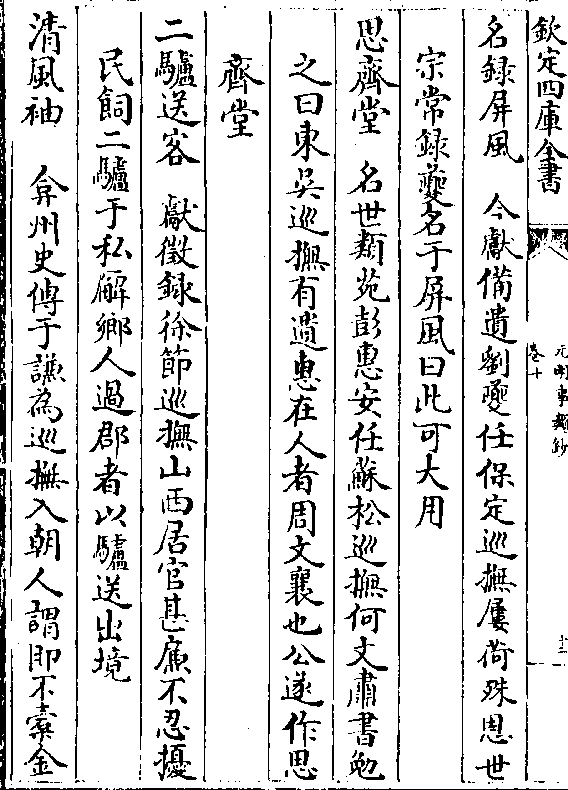 欽定四庫全書
元明事類鈔
卷十
十三
名録屏風　今獻備遺劉夔任保定巡撫屢荷殊恩世
宗常録夔名于屏風曰此可大用
思齊堂　名世類苑彭惠安任蘇松巡撫何文肅書勉
之曰東吳巡撫有遺惠在人者周文襄也公遂作思
齊堂
二驢送客　獻徵録徐節巡撫山西居官甚廉不忍擾
民飼二驢于私廨鄉人過郡者以驢送出境
清風袖　弇州史傳于謙為巡撫入朝人謂即不橐金